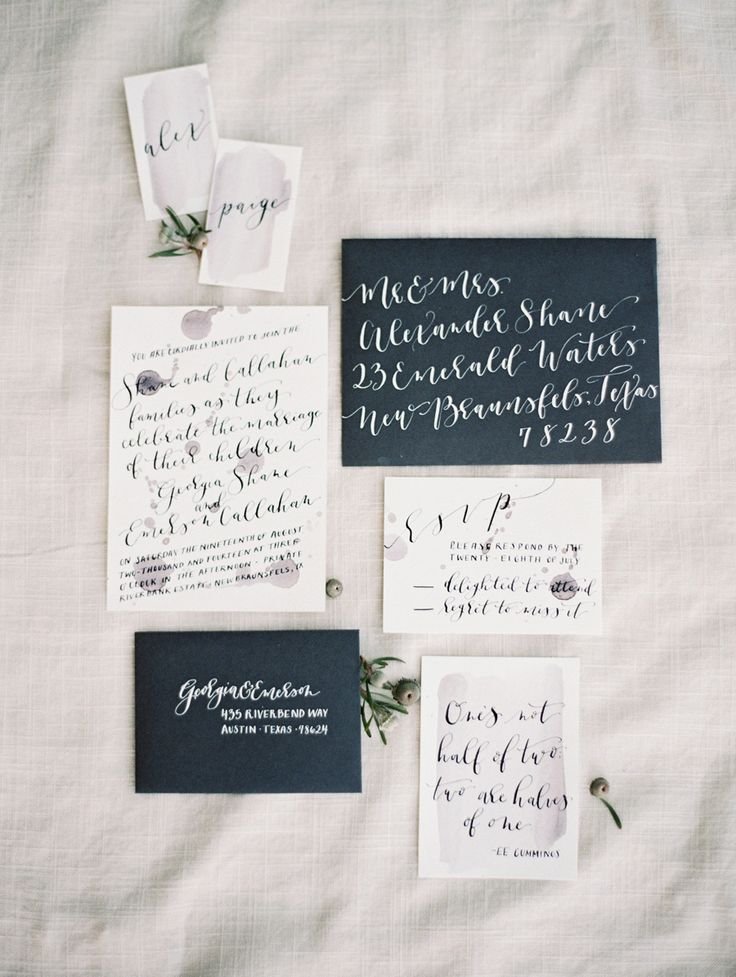 alex
paige
Mr. & Mrs.
Alexander Shane
23 Emerald Waters
New Braunsfels, Texas
78238
YOU ARE CORDIALLY INVITED TO JOIN THE
Shane and Callahan
families as they
celebrate the marriage
of their children
Georgia Shane
and
Emerson Callahan
ON SATURDAY THE NINETEENTH OF AUGUST
TWO-THOUSAND AND FOURTEEN AT THREE
O'CLOCK IN THE AFTERNOON · PRIVATE
RIVERBANK ESTATE, NEW BRAUNSFELS, TX
rsvp
PLEASE RESPOND BY THE
TWENTY-EIGHTH OF JULY
— delighted to attend
— regret to miss it
Georgia & Emerson
435 RIVERBEND WAY
AUSTIN · TEXAS · 78624
One's not
half of two:
two are halves
of one
-EE CUMMINGS